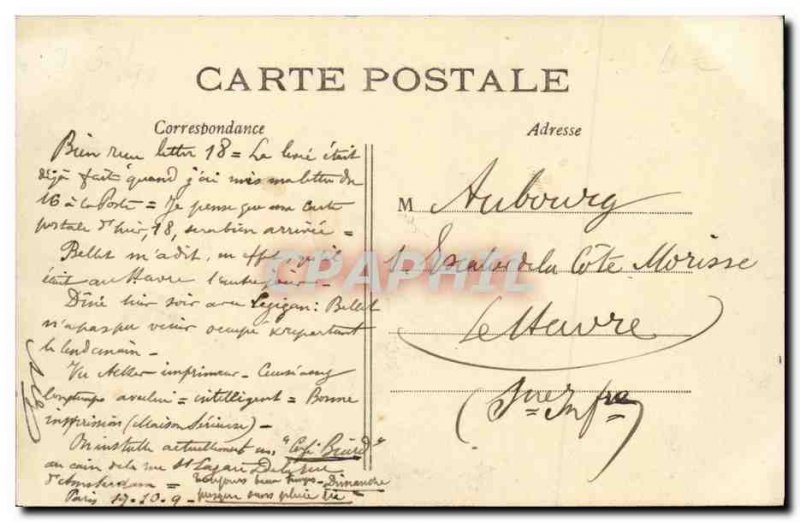 CARTE POSTALE
Correspondance
Adresse
Bien reçu lettre 18 = La levée était
déjà fait quand j'ai mis ma lettre du
16 à la Poste = Je pense que ma carte
postale d'hier, 18, sera bien arrivée =
Bellet m'a dit, en effet, qu'il
était au Havre
Diné hier soir avec Legigan : Bellet
n'a pas pu venir occupé repartant
le lendemain -
Vu imprimeur - Causé assez
longtemps avec lui = intelligent = Bonne
impression (Maison Sérieuse) -
On installe actuellement un "Café Biard"
au coin de la rue St Lazare & de la rue
d'Amsterdam = Toujours beau temps - Dimanche
Paris 19-10-9 - presque sans pluie
M Aubourg
1 Escalier de la Côte Morisse
Le Havre
(Sne Infre)
CPAPHIL